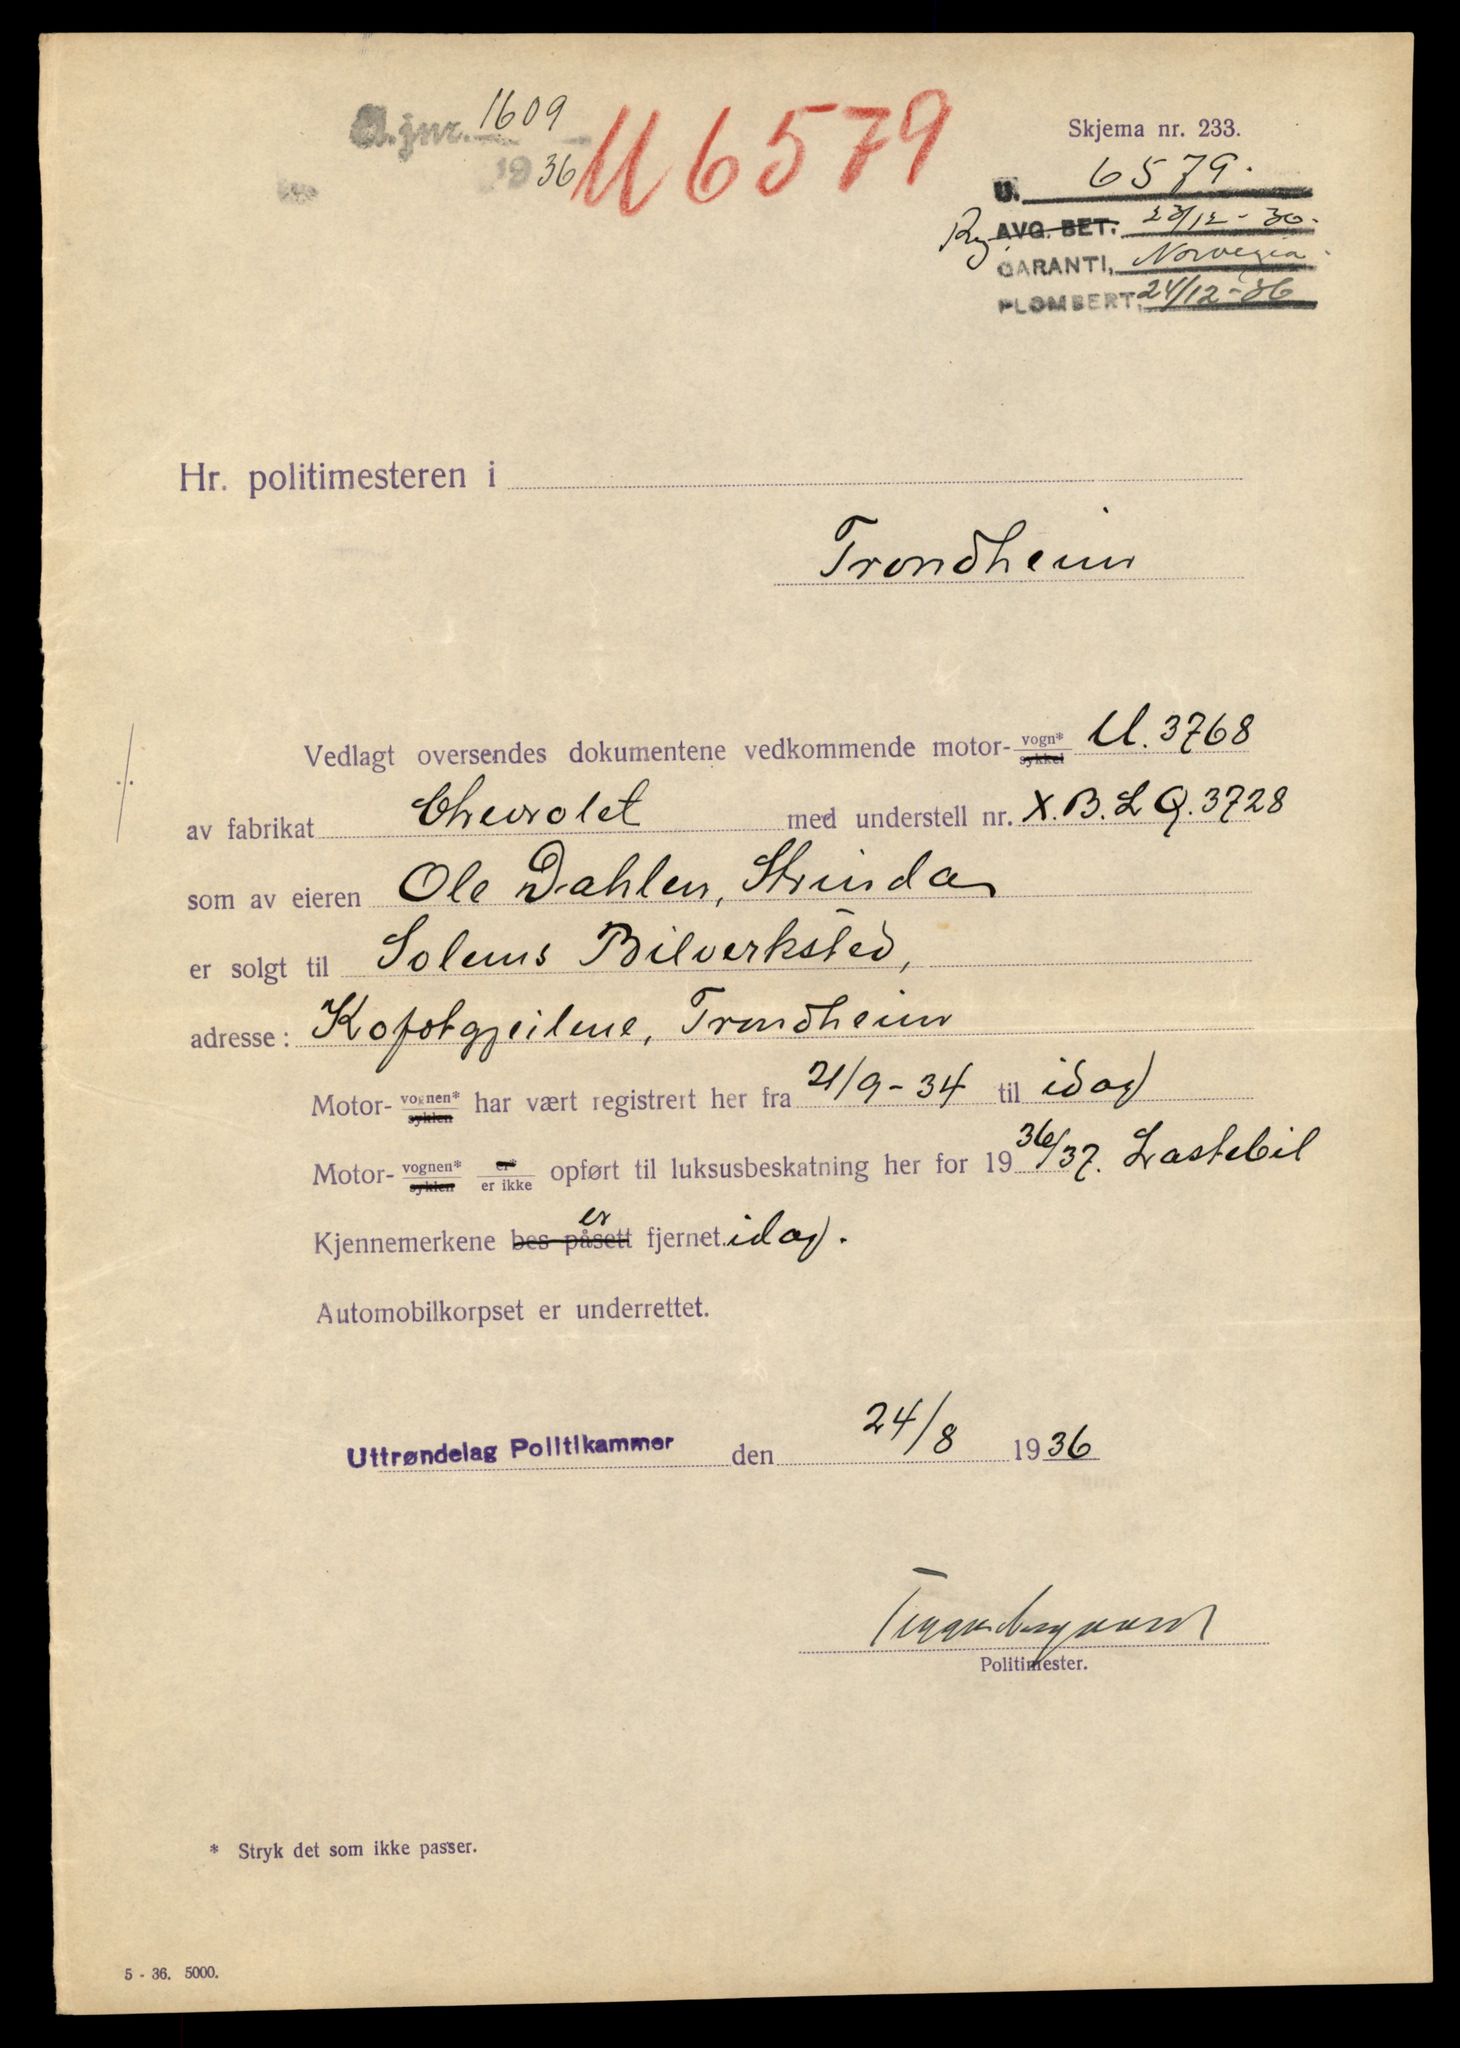 A.jnr. 1609
1936
U 6579
Skjema nr. 233.
U. 6579.
Reg. AVG. BET. 23/12-36.
GARANTI, Norvegia.
PLOMBERT, 24/12-36
Hr. politimesteren i
Trondheim
Vedlagt oversendes dokumentene vedkommende motor- vogn* sykkel U. 3768
av fabrikat Chevrolet med understell nr. X.B.L Q.3728
som av eieren Ole Dahlen, Strinda
er solgt til Solems Bilverksted,
adresse: Kofotgjeilene, Trondheim
Motor- vognen* syklen har vært registrert her fra 21/9-34 til idag
Motor- vognen* syklen er* er ikke opført til luksusbeskatning her for 1936/37. Lastebil
Kjennemerkene bes påsett er fjernet idag.
Automobilkorpset er underrettet.
Uttrøndelag Politikammer den 24/8 1936
Politimester.
* Stryk det som ikke passer.
5 - 36. 5000.